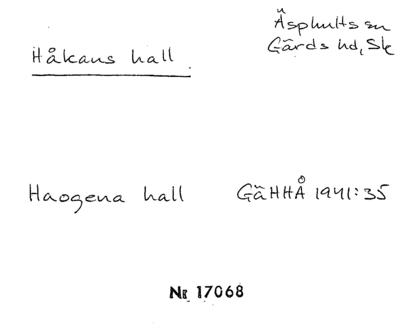 Håkans hall
Äsphults sn
Gärds hd, Sk
Haogena hall GäHHÅ 1941:35
Nr 17068